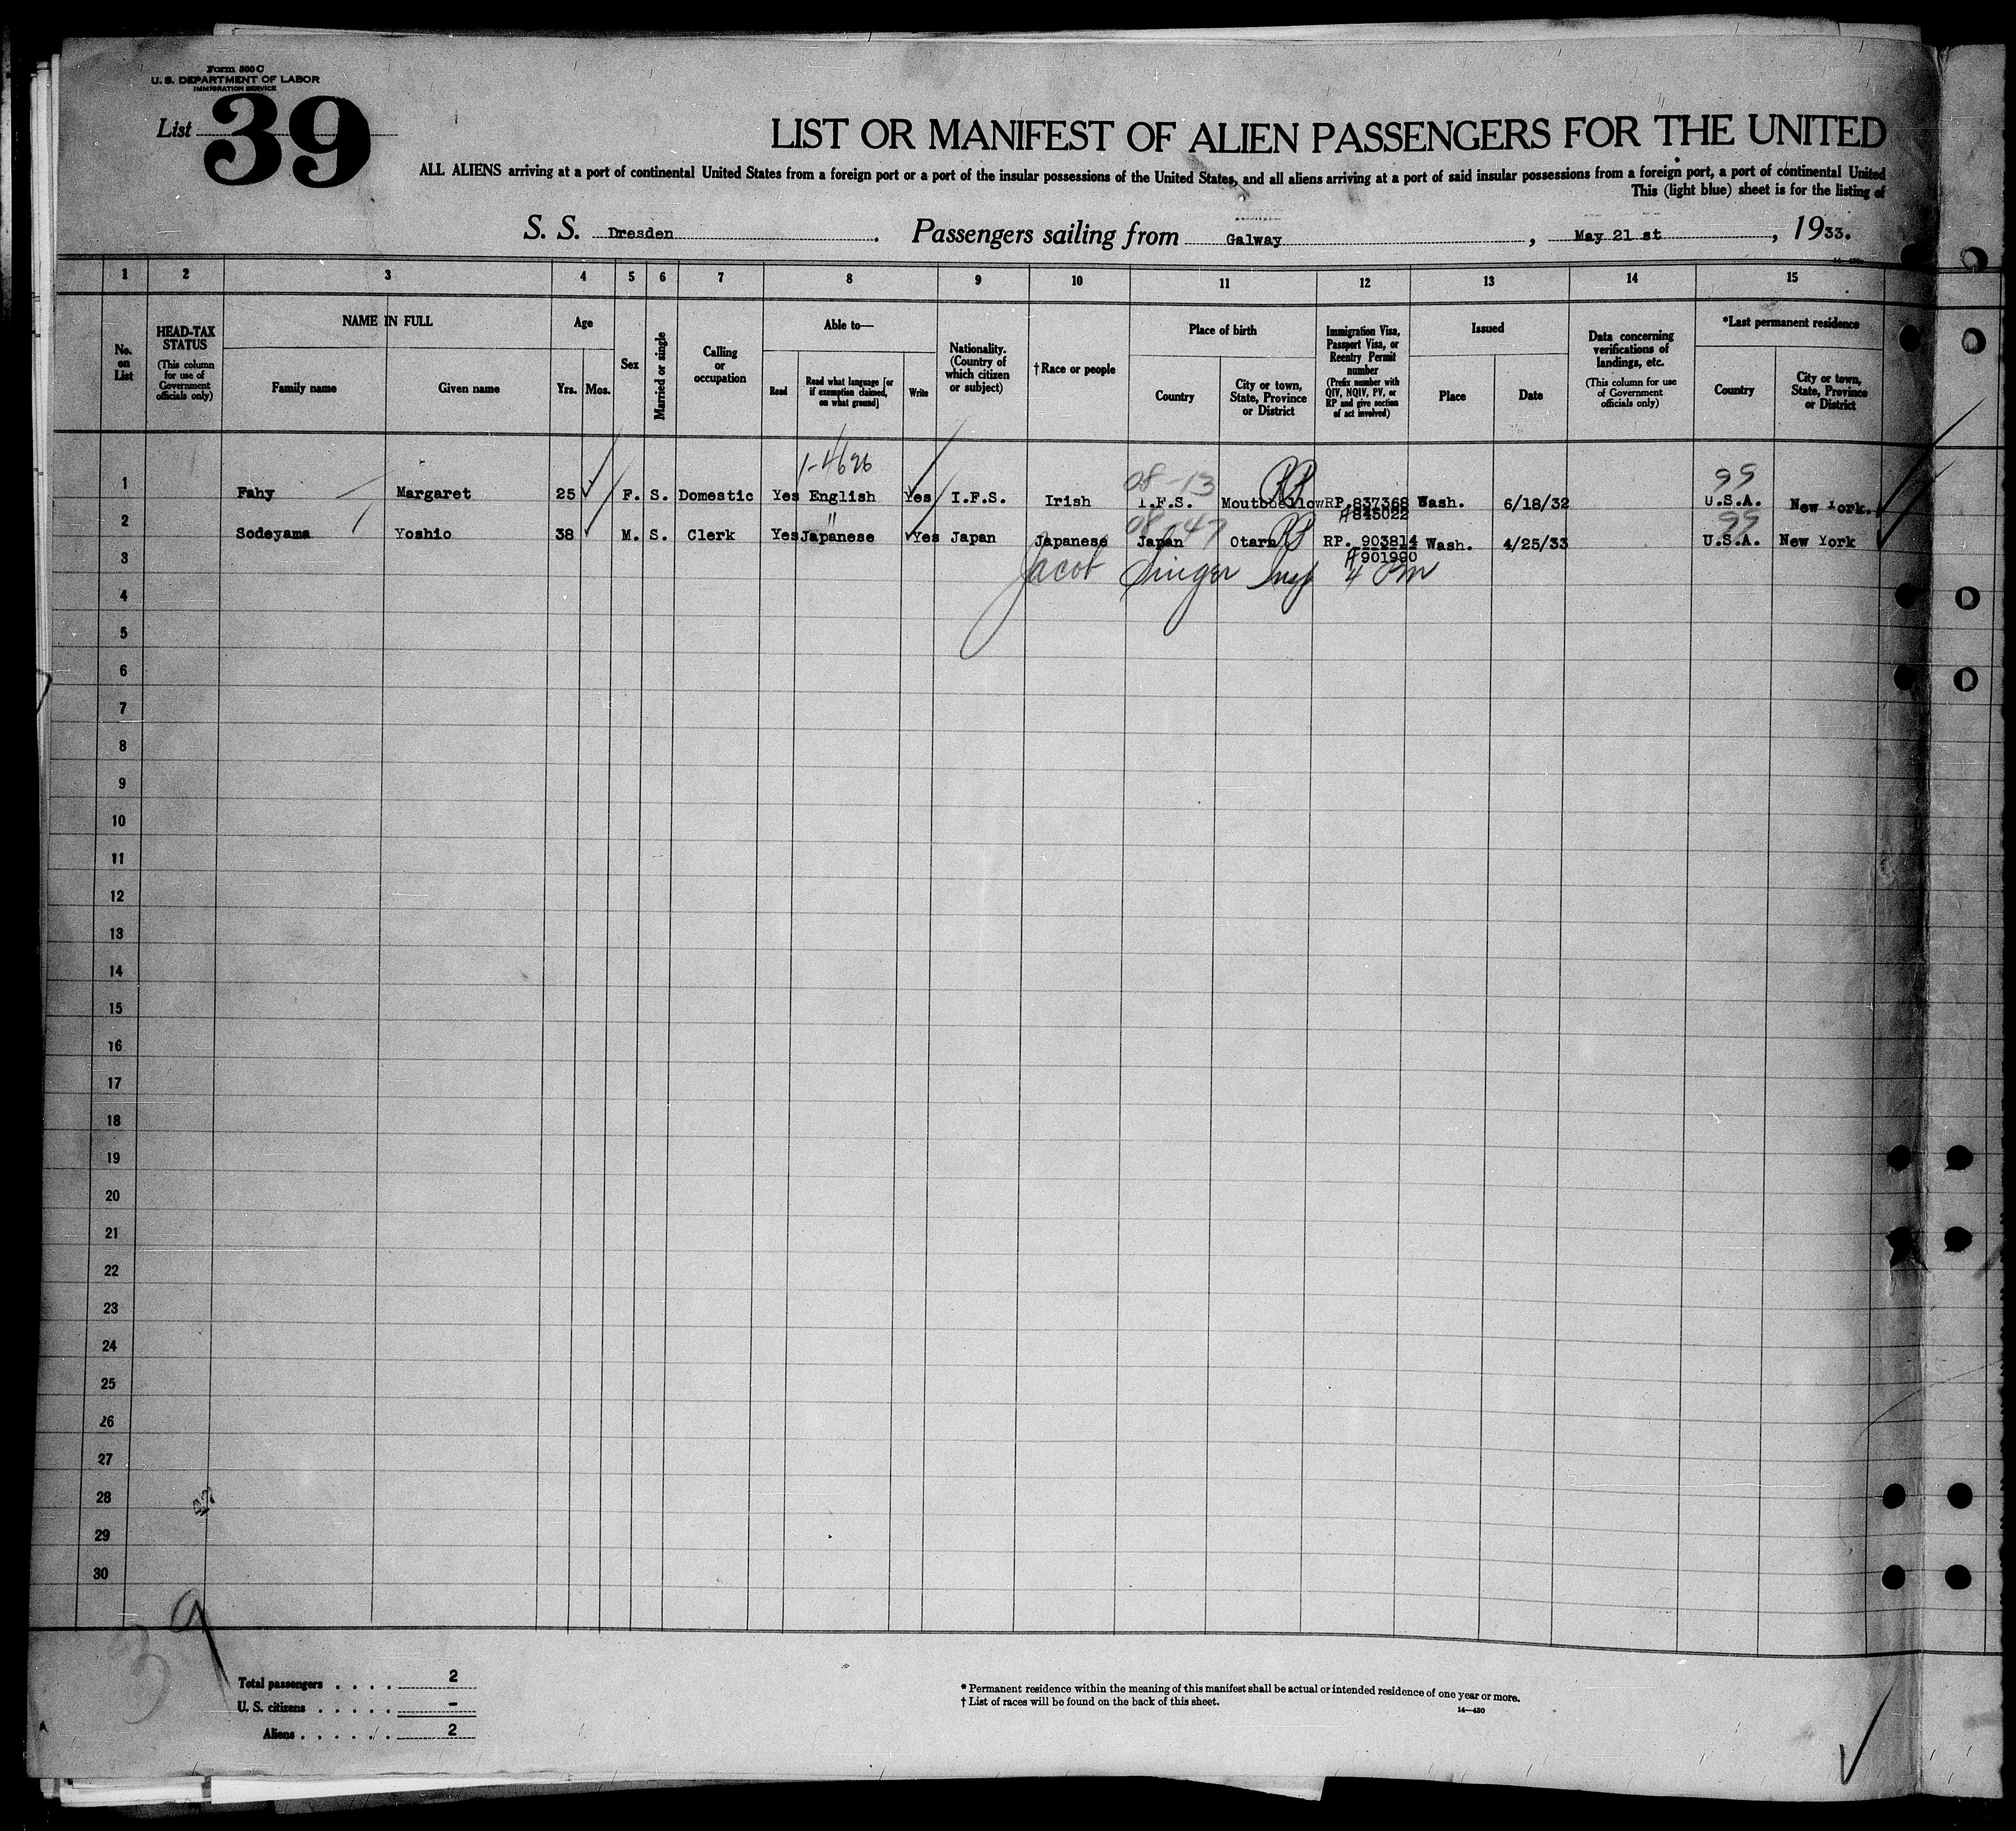 Form 500 C
U. S. DEPARTMENT OF LABOR
IMMIGRATION SERVICE
List 39
LIST OR MANIFEST OF ALIEN PASSENGERS FOR THE UNITED
ALL ALIENS arriving at a port of continental United States from a foreign port or a port of the insular possessions of the United States, and all aliens arriving at a port of said insular possessions from a foreign port, a port of continental United
This (light blue) sheet is for the listing of
S. S. Dresden. Passengers sailing from Galway, May 21 st, 1933.
1 2 3 4 5 6 7 8 9 10 11 12 13 14 15
No. on List
HEAD-TAX STATUS
(This column for use of Government officials only)
NAME IN FULL
Family name
Given name
Age
Yrs. Mos.
Sex
Married or single
Calling or occupation
Able to—
Read
Read what language [or if exemption claimed, on what ground]
Write
Nationality. (Country of which citizen or subject)
†Race or people
Place of birth
Country
City or town, State, Province or District
Immigration Visa, Passport Visa, or Reentry Permit number
(Prefix number with QIV, NQIV, PV, or RP and give section of act involved)
Issued
Place
Date
Data concerning verifications of landings, etc.
(This column for use of Government officials only)
*Last permanent residence
Country
City or town, State, Province or District
1-4696
08-13 RP 99
1 Fahy Margaret 25 F. S. Domestic Yes English Yes I.F.S. Irish I.F.S. Moutbbellow RP 837368 Wash. 6/18/32 U.S.A. New York.
A 845022
08 47 RP 99
2 Sodeyama Yoshio 38 M. S. Clerk Yes Japanese Yes Japan Japanese Japan Otaru RP. 903814 Wash. 4/25/33 U.S.A. New York
A 901990
3 Jacob Singer Insp 4 PM
4
5
6
7
8
9
10
11
12
13
14
15
16
17
18
19
20
21
22
23
24
25
26
27
28
29
30
39
Total passengers . . . . 2
U. S. citizens . . . . . –
Aliens . . . . . . 2
* Permanent residence within the meaning of this manifest shall be actual or intended residence of one year or more.
† List of races will be found on the back of this sheet.
14—430